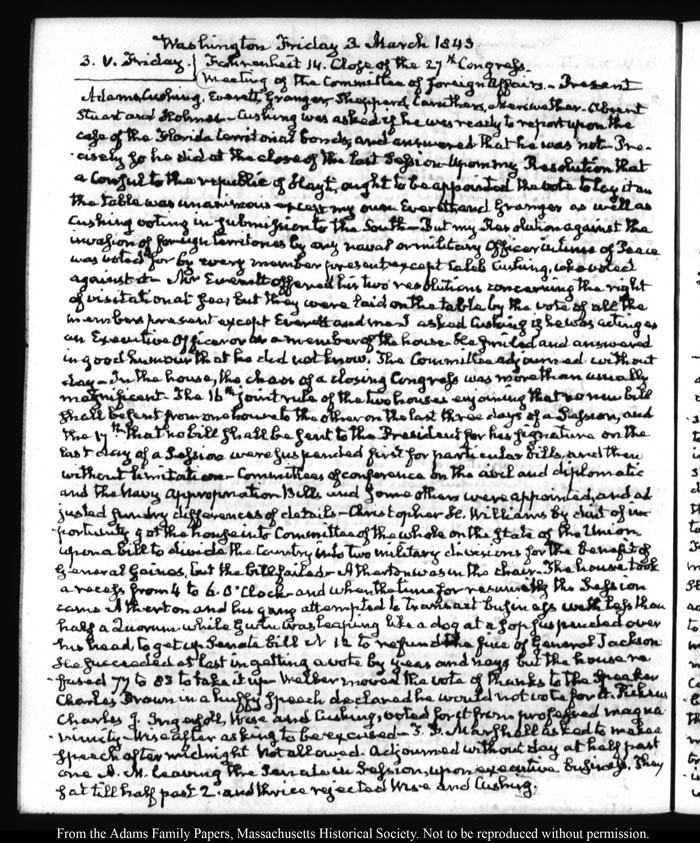 Washington Friday 3. March 1843
3. V. Friday. Fahrenheit 14. Close of the 27th Congress.
Meeting of the Committee of foreign Affairs. Present
Adams, Cushing, Everett, Granger, Shepperd, Caruthers, Meriwether. Absent
Stuart and Holmes. Cushing was asked if he was ready to report upon the
case of the Florida territorial bonds, and answered that he was not. Pre-
cisely so he did at the close of the last Session. Upon my Resolution that
a Consul to the republic of Hayti, ought to be appointed the vote to lay it on
the table was unanimous except my own Everett and Granger as well as
Cushing voting in submission to the South. But my Resolution against the
invasion of foreign territories by any naval or military Officer in time of Peace
was voted for by every member present except Caleb Cushing, who voted
against it. Mr Everett offered his two resolutions concerning the right
of visitation at sea; but they were laid on the table by the vote of all the
members present except Everett and me. I asked Cushing if he was acting as
an Executive Officer or as a member of the house. He smiled and answered
in good humour that he did not know. The Committee adjourned without
day. In the house, the chaos of a closing Congress was more than usually
magnificent. The 16th joint rule of the two houses enjoining that no new bill
shall be sent from one house to the other on the last three days of a Session, and
the 17th that no bill shall be sent to the President for his signature on the
last day of a Session were suspended first for particular bills, and then
without limitation. Committees of conference on the civil and diplomatic
and the Navy appropriation Bills and some others were appointed, and ad
justed sundry differences of details. Christopher H. Williams by dint of im-
portunity got the house into Committee of the whole on the state of the Union
upon a bill to divide the Country into two military divisions for the benefit of
General Gaines, but the bill failed. Atherton was in the chair. The house took
a recess from 4 to 6. O'Clock and when the time for resuming the Session
came Atherton and his gang attempted to transact business with less than
half a Quorum while Gwin was leaping like a dog at a sop suspended over
his head, to get up Senate bill N 12 to refund the fine of General Jackson
He succeeded at last in getting a vote by yeas and nays but the house re
fused 77 to 83 to take it up. Weller moved the vote of thanks to the Speaker
Charles Brown in a huffy speech declared he would not vote for it. Pickens
Charles J. Ingersoll, Wise and Cushing, voted for it from professed magna-
nimity. Wise after asking to be excused. T. F. Marshall asked to make a
speech after midnight. Not allowed. Adjourned without day at half past
one A. M. leaving the Senate in Session, upon executive business. They
sat till half past 2. and thrice rejected Wise and Cushing.
From the Adams Family Papers, Massachusetts Historical Society. Not to be reproduced without permission.